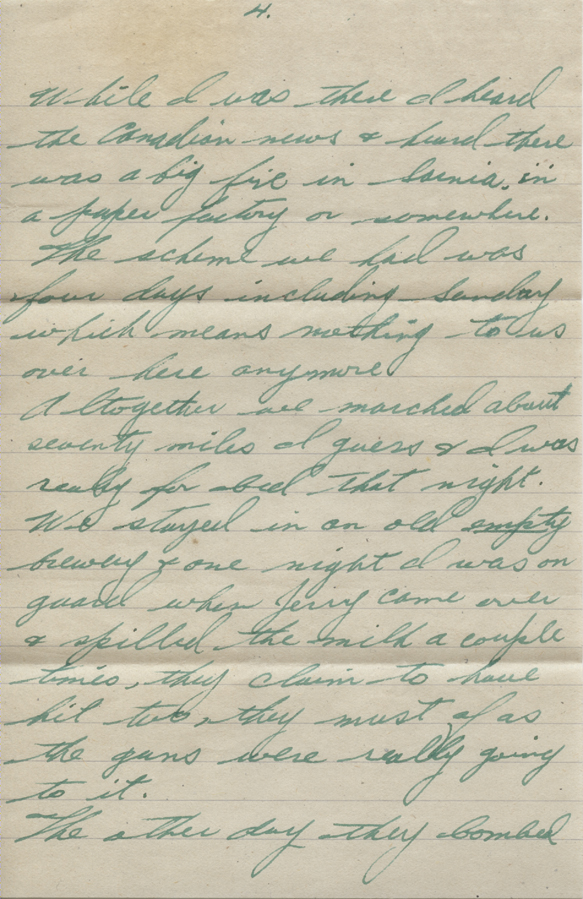 4.
While I was there I heard
the Canadian news & heard there
was a big fire in Sarnia, in
a paper factory or somewhere.
The scheme we had was
four days including Sunday
which means nothing to us
over here anymore
Altogether we marched about
seventy miles I guess & I was
ready for bed that night.
We stayed in an old empty
brewery & one night I was on
guard when Jerry came over
& spilled the milk a couple
times, they claim to have
hit two, they must of as
the guns were really going
to it.
The other day they bombed